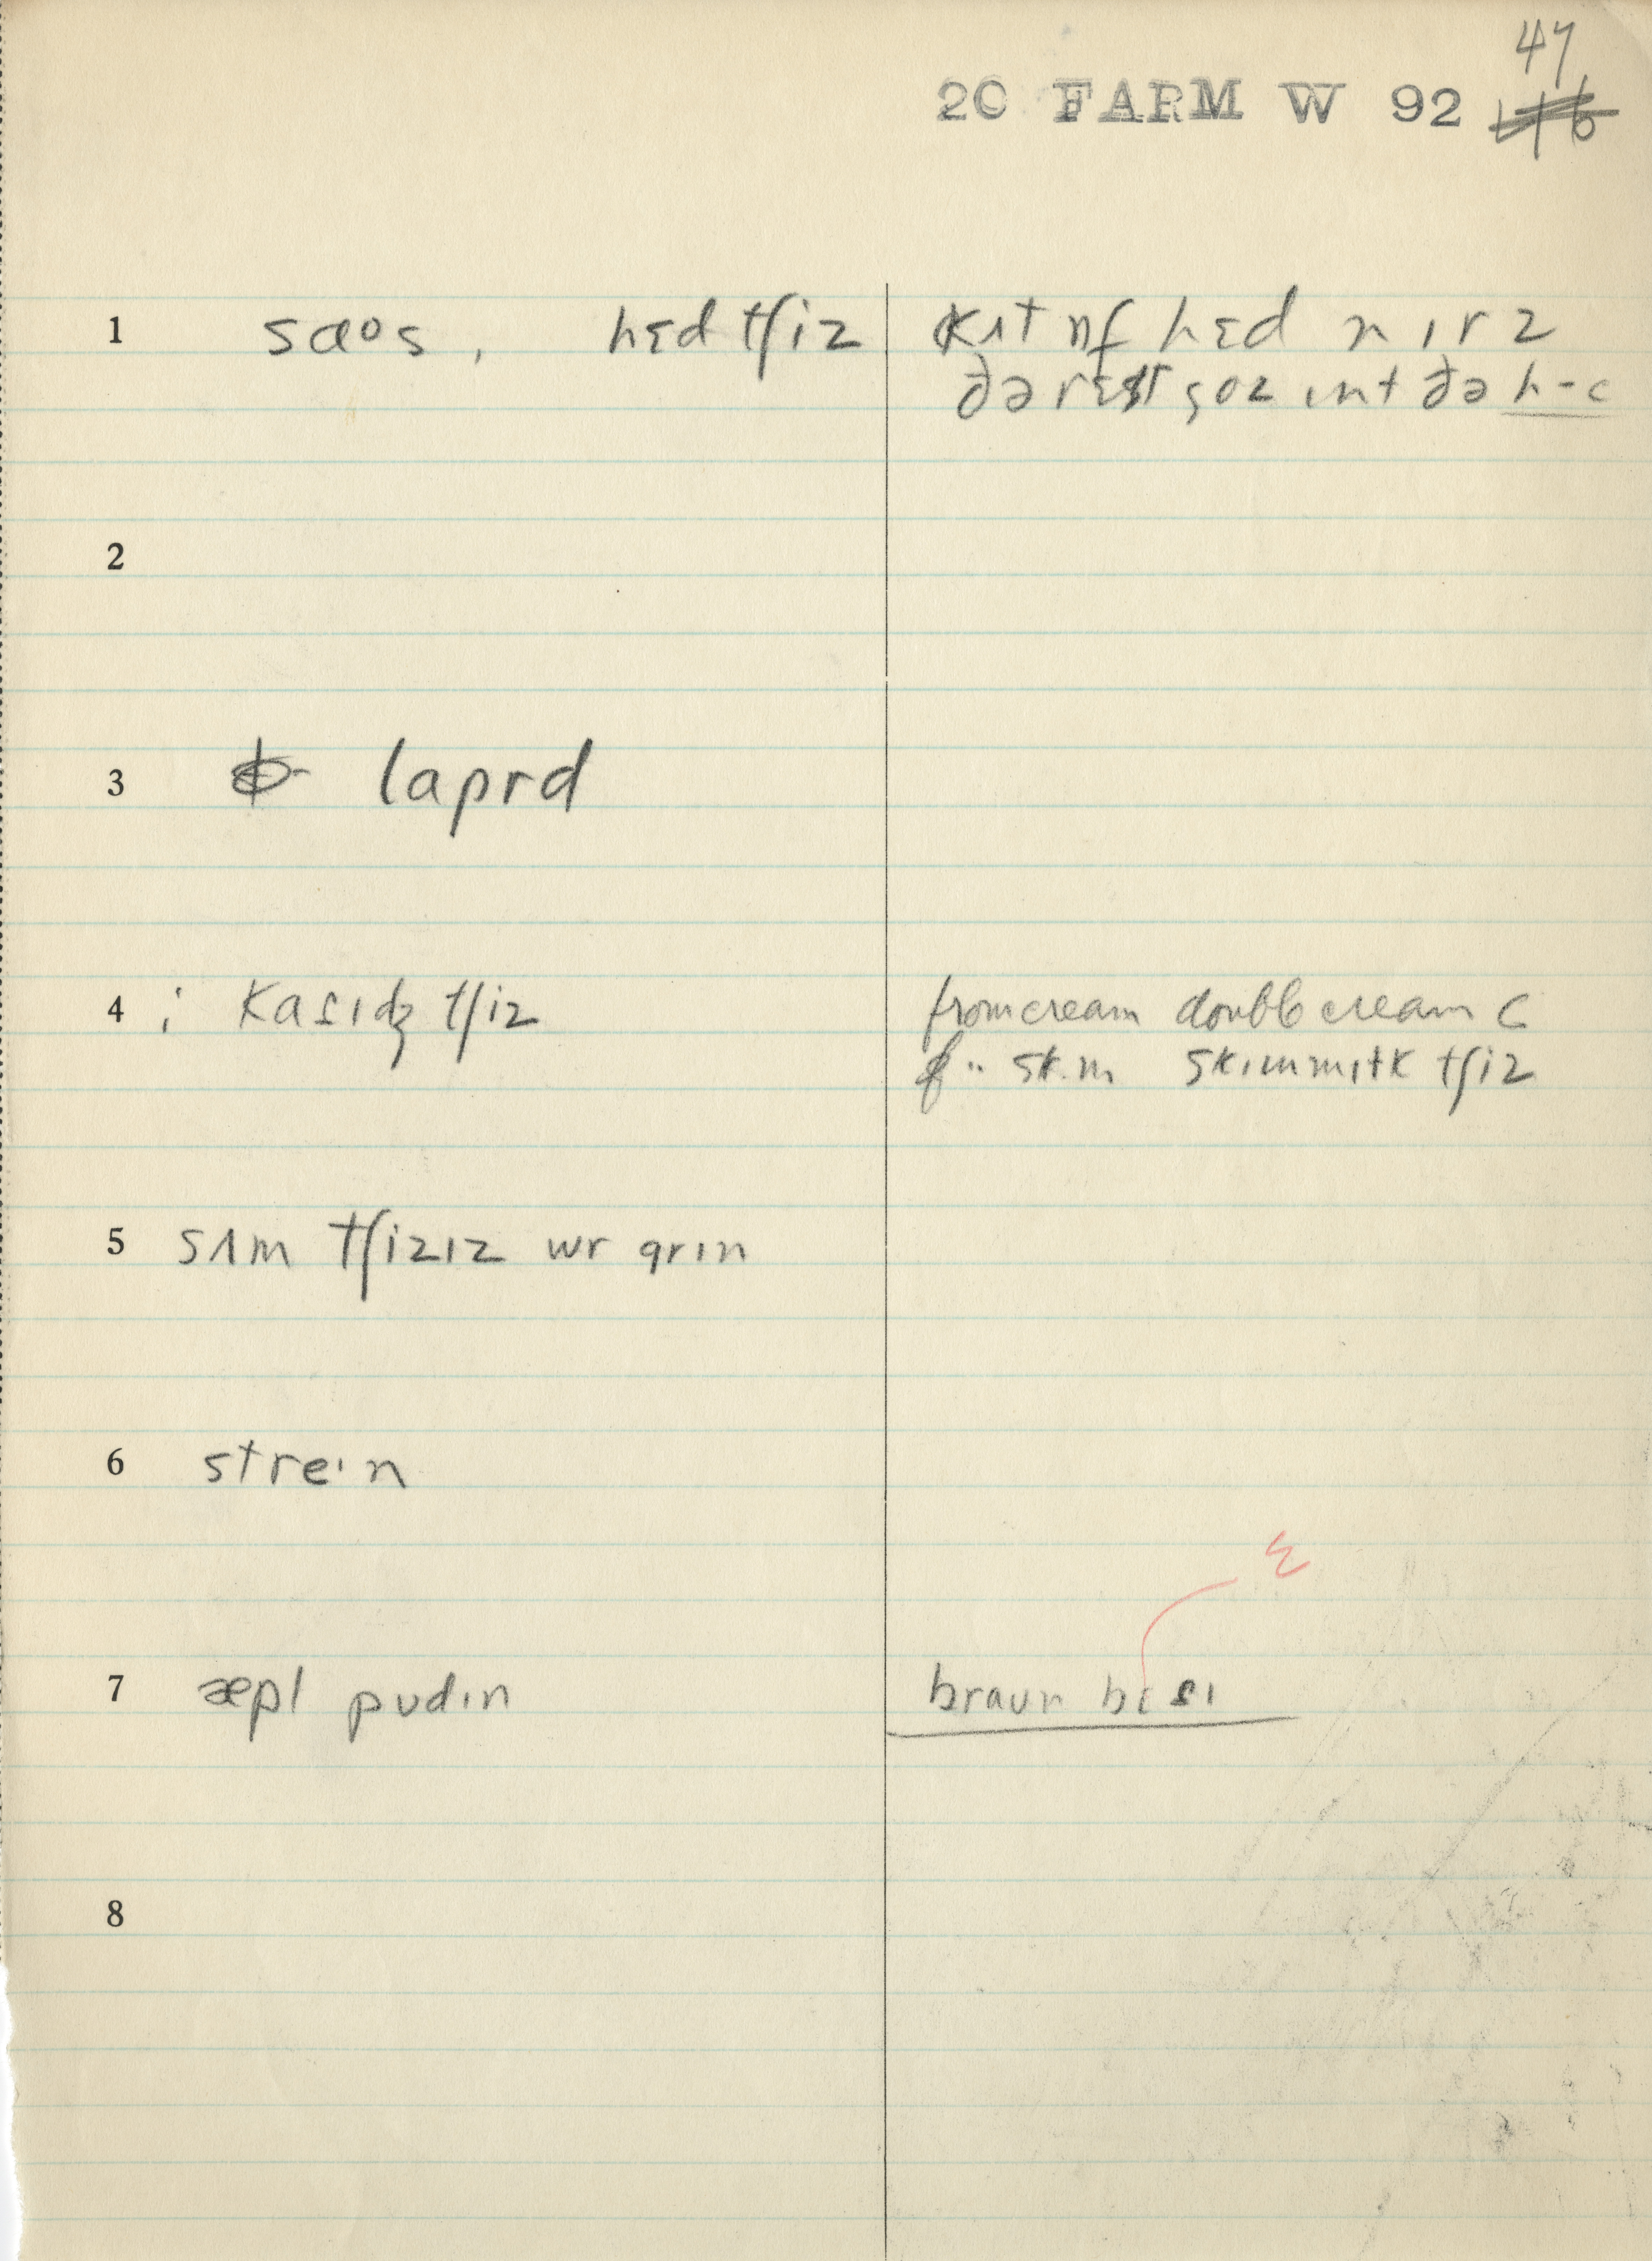 47
20 FARM W 92
1 saos, hɛd tʃiz kʌt ɒf hɛd n ɪrz
ðə rɛst goz ɪnt ðə h-c
2
3 laprd
4 ; kaɾɪdʒ tʃiz from cream double cream c
" skɪm skɪmmɪlk tʃiz
5 sʌm tʃizɪz wr grin
6 streɪn
7 æpl pudɪn braun bɛsɪ
ɛ
8